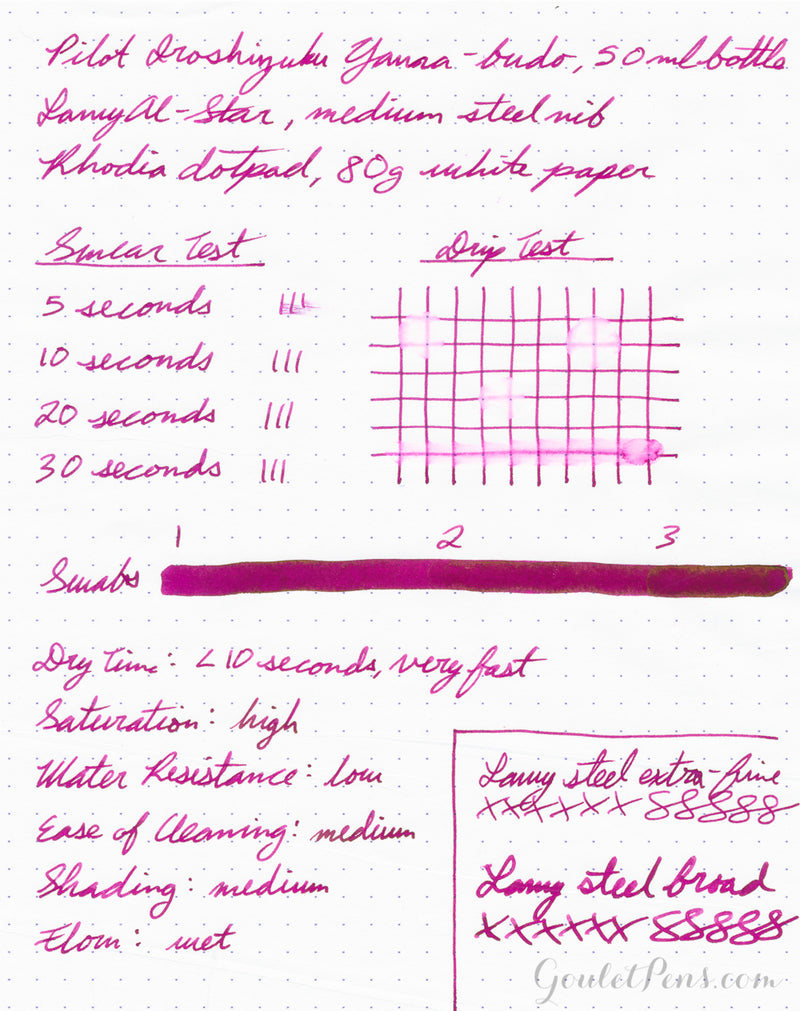 Pilot Iroshizuku Yama-budo, 50ml bottle
Lamy Al-Star, medium steel nib
Rhodia dotpad, 80g white paper
Smear Test
5 seconds III
10 seconds III
20 seconds III
30 seconds III
Drip Test
1 2 3
Swabs
Dry Time: < 10 seconds, very fast
Saturation: high
Water Resistance: low
Ease of Cleaning: medium
Shading: medium
Flow: wet
Lamy steel extra-fine
xxxxxx 88888
Lamy steel broad
xxxxxx 88888
GouletPens.com